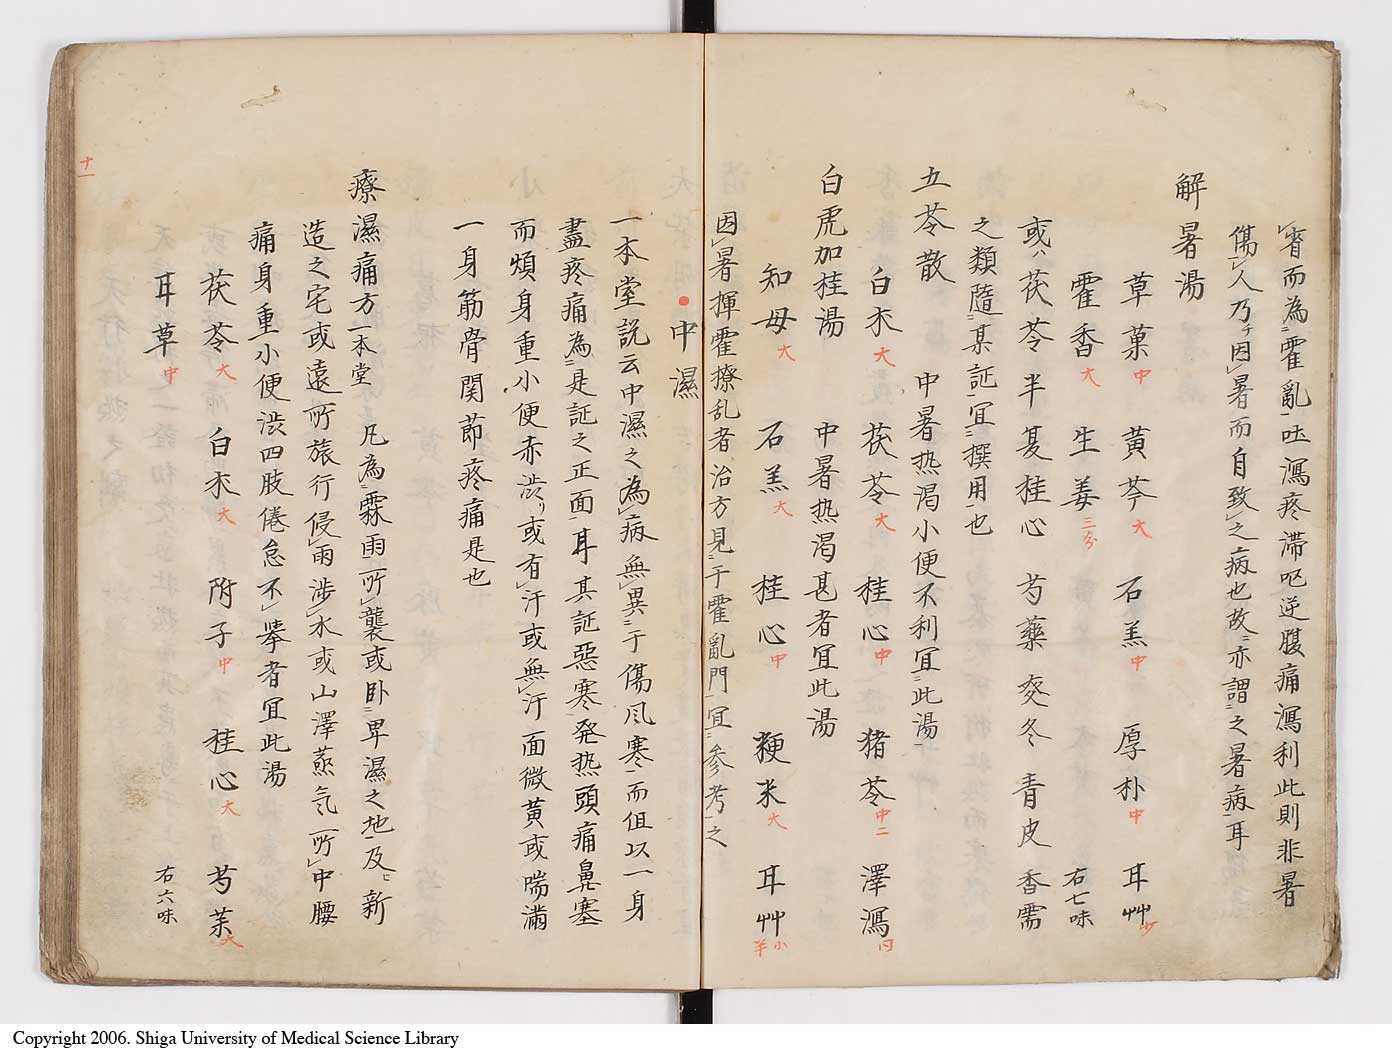 宵而為霍亂吐瀉疼滞呕逆腹痛瀉利此則非暑
傷人乃チ因暑而自致之病也故ニ亦謂之暑病耳
解暑湯
草菓中 黄芩大 石羔中 厚朴中 耳艸少
霍香大 生姜三分 右七味
或ハ茯苓半夏桂心芍藥麥冬青皮香需
之類隨某証宜撰用也
五苓散 中暑热渇小便不利宜此湯
白朮大 茯苓大 桂心中 猪苓中二 澤瀉内
白虎加桂湯 中暑热渇甚者宜此湯
知母大 石羔大 桂心中 粳米大 耳艸小半
因暑揮霍撩乱者治方見于霍亂門宜参考之
中濕
一本堂説云中濕之為病無異于傷風寒而但以一身
盡疼痛為是証之正面耳其証惡寒発热頭痛鼻塞
而煩身重小便赤渋リ或有汗或無汗面微黄或喘滿
一身筋骨関節疼痛是也
療濕痛方一本堂 凡為霖雨所襲或卧卑濕之地及ヒ新
造之宅或遠所旅行侵雨渉水或山澤蒸氣所中腰
痛身重小便渋四肢倦怠不擧者宜此湯
茯苓大 白朮大 附子中 桂心大 芍薬大
耳草中 右六味
十一
Copyright 2006. Shiga University of Medical Science Library